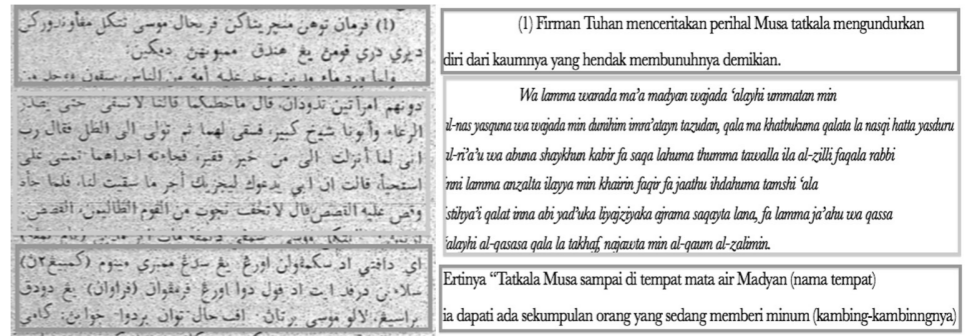 (1) فرمان توهن منچريتاكن فريحال موسى تتكل مڠاوندوركن
ديري دري قومڽ يڠ هندق ممبونهڽ دمكين:
ولما ورد ماء مدين وجد عليه أمة من الناس يسقون ووجد من
دونهم امرأتين تذودان، قال ماخطبكما قالتا لانسقي حتى يصدر
الرعاء وأبونا شيخ كبير، فسقى لهما ثم تولى الى الظل فقال رب
انى لما أنزلت الى من خير فقير، فجاءته احداهما تمشى على
استحياء قالت ان ابي يدعوك ليجزيك أجر ما سقيت لنا، فلما جاء
وقص عليه القصص قال لاتخف نجوت من القوم الظالمين، القصص.
اي دافتي اد سكمفولن اورڠ يڠ سدڠ ممبري مينوم (كمبيڠ٢ن)
سلاين درفد ايت اد فول دوا اورڠ فرمفوان (فراوان) يڠ دودق
براسيڠ، لالو موسى برتان: افحال توان بردوا، جوابن: كامي
(1) Firman Tuhan menceritakan perihal Musa tatkala mengundurkan
diri dari kaumnya yang hendak membunuhnya demikian.
Wa lamma warada ma'a madyan wajada 'alayhi ummatan min
al-nas yasquna wa wajada min dunihim imra'atayn tazudan, qala ma khatbukuma qalata la nasqi hatta yasduru
al-ri'a'u wa abuna shaykhun kabir fa saqa lahuma thumma tawalla ila al-zilli faqala rabbi
inni lamma anzalta ilayya min khairin faqir fa jaathu ihdahuma tamshi 'ala
istihya'i qalat inna abi yad'uka liyajziyaka ajrama saqayta lana, fa lamma ja'ahu wa qassa
'alayhi al-qasasa qala la takhaf, najawta min al-qaum al-zalimin.
Ertinya “Tatkala Musa sampai di tempat mata air Madyan (nama tempat)
ia dapati ada sekumpulan orang yang sedang memberi minum (kambing-kambinngnya)